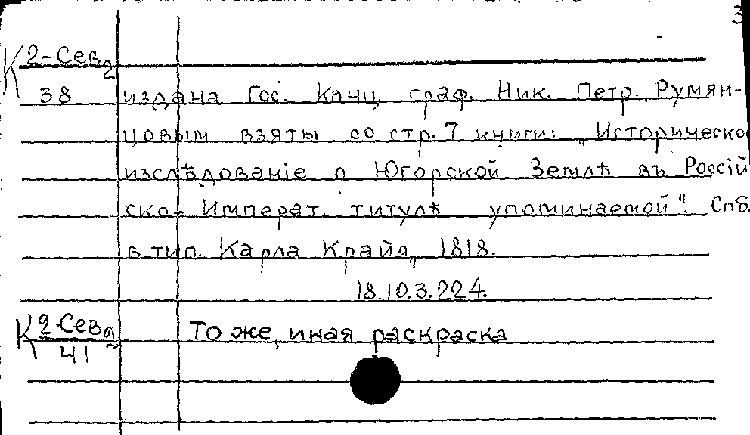 К 2-Сев 2
38 издана Гос. Канц. граф. Ник. Петр. Румян-
цовым взяты со стр. 7 книги: „Историческое
изслѣдованіе о Югорской Землѣ въ Россій
ско-Императ. титулѣ упоминаемой". Спб.
в тип. Карла Крайя, 1818.
18.10.3.224.
К 2-Сев 2
41 То же, иная раскраска